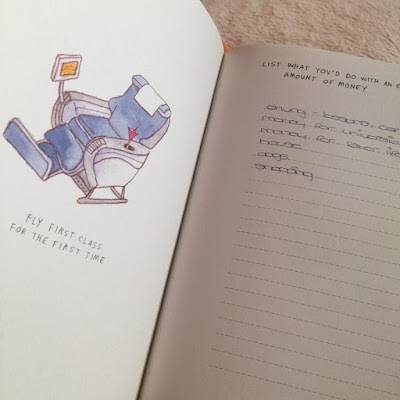 FLY FIRST CLASS
FOR THE FIRST TIME
LIST WHAT YOU'D DO WITH AN E
AMOUNT OF MONEY
driving - lessons, car
money for universi
money for later life
house
dogs
shopping